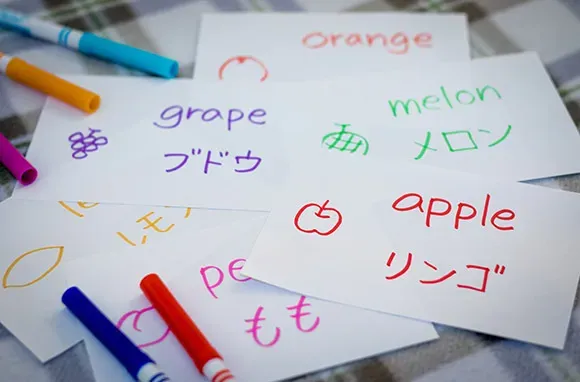 orange
grape
ブドウ
melon
メロン
apple
リンゴ
レモン
pe
もも